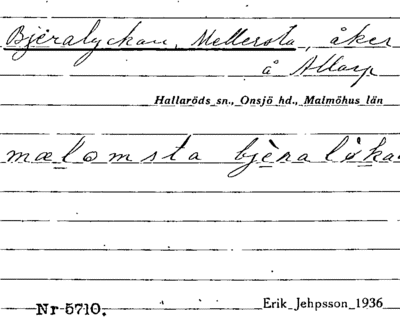 Bjäralyckan, Mellersta, åker
å Allarp
Hallaröds sn., Onsjö hd., Malmöhus län
mælomsta bjæraløka
Nr 5710. Erik Jehpsson 1936